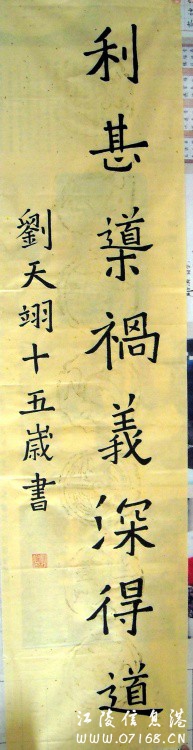 利甚導禍義深得道
劉天翊十五歲書
江陵信息港
WWW.07168.CN